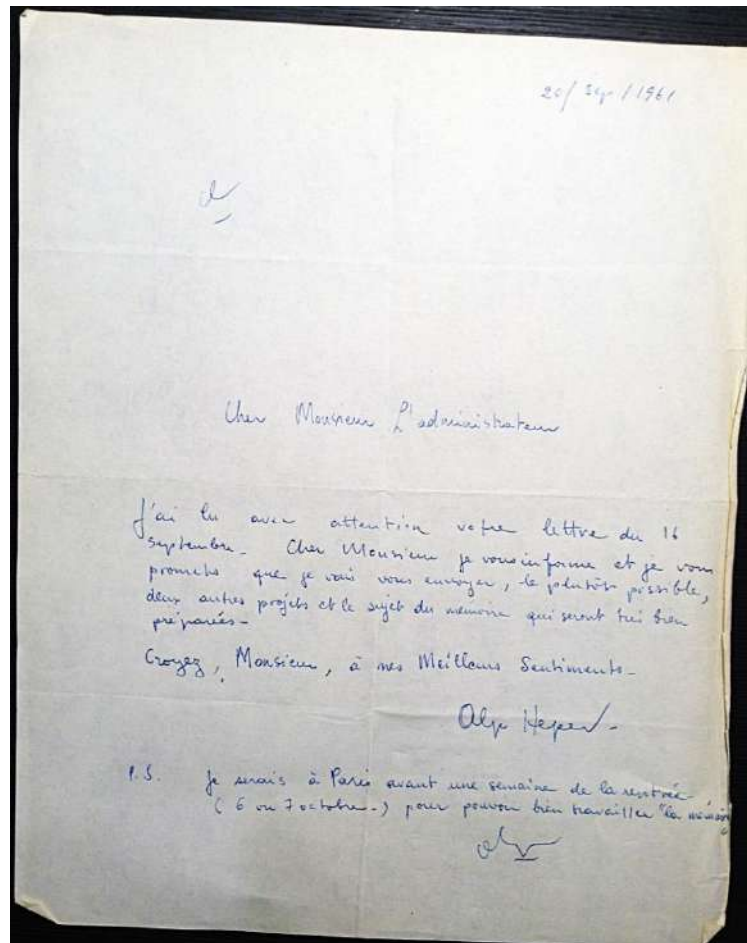 20/Sep/1961
Cher Monsieur L'administrateur
J'ai lu avec attention votre lettre du 16
septembre. Cher Monsieur je vous informe et je vous
promets que je vais vous envoyer, le plutôt possible,
deux autres projets et le sujet du mémoire qui seront très bien
préparées.
Croyez, Monsieur, à mes Meilleurs Sentiments.
Alp Heper
P.S. Je serais à Paris avant une semaine de la rentrée
(6 ou 7 octobre.) pour pouvoir bien travailler "la